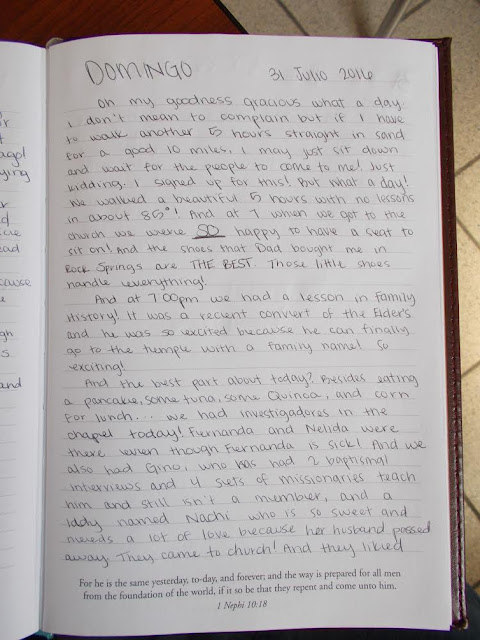 DOMINGO 31 Julio 2016
Oh my goodness gracious what a day.
I don't mean to complain but if I have
to walk another 5 hours straight in sand
for a good 10 miles, I may just sit down
and wait for the people to come to me! Just
kidding. I signed up for this! But what a day!
We walked a beautiful 5 hours with no lessons
in about 85°! And at 7 when we got to the
church we were SO happy to have a seat to
sit on! And the shoes that Dad bought me in
Rock Springs are THE BEST. Those little shoes
handle everything!
And at 7:00pm we had a lesson in Family
History! It was a recient convert of the Elder's
and he was so excited because he can finally
go to the temple with a family name! So
exciting!
And the best part about today? Besides eating
a pancake, some tuna, some Quinoa, and corn
for lunch... we had investigadores in the
chapel today! Fernanda and Nelida were
there even though Fernanda is sick! And we
also had Gino, who has had 2 baptismal
interviews and 4 sets of missionaries teach
him and still isn't a member, and a
lady named Nachi who is so sweet and
needs a lot of love because her husband passed
away. They came to church! And they liked
For he is the same yesterday, to-day, and forever; and the way is prepared for all men
from the foundation of the world, if it so be that they repent and come unto him.
1 Nephi 10:18